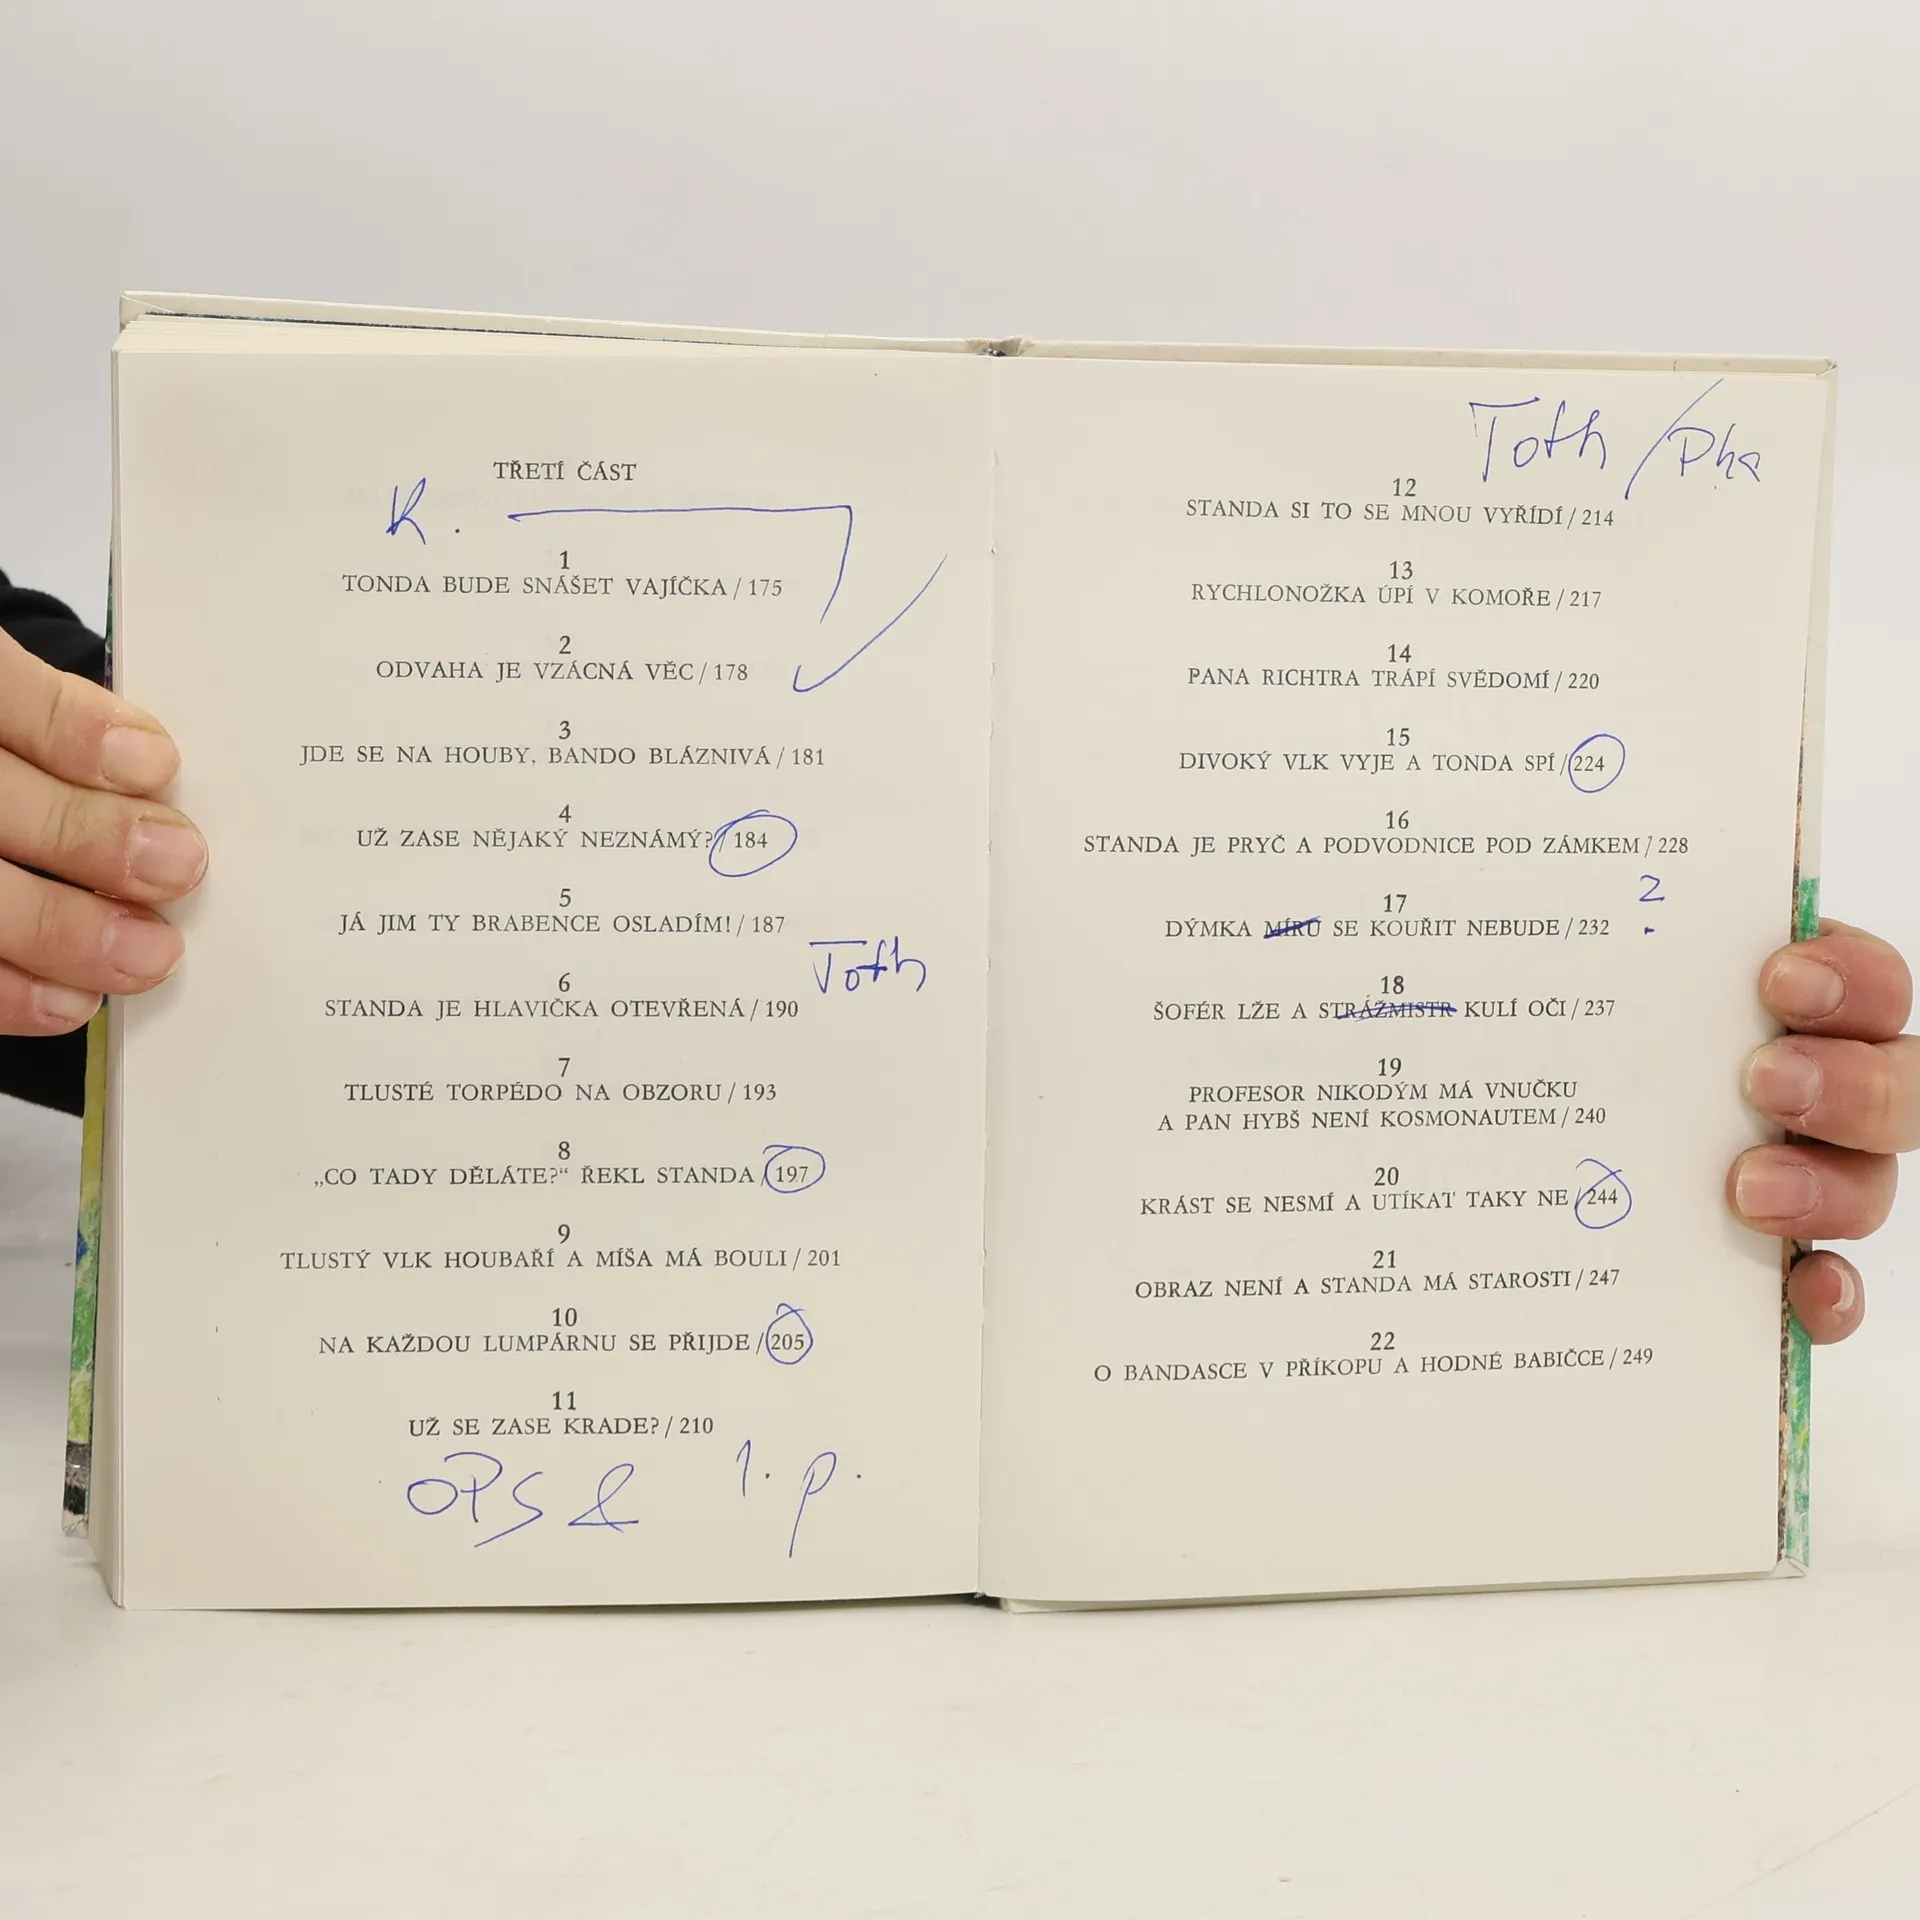 TŘETÍ ČÁST
K.
1
TONDA BUDE SNÁŠET VAJÍČKA / 175
2
ODVAHA JE VZÁCNÁ VĚC / 178
3
JDE SE NA HOUBY, BANDO BLÁZNIVÁ / 181
4
UŽ ZASE NĚJAKÝ NEZNÁMÝ? / 184
5
JÁ JIM TY BRABENCE OSLADÍM! / 187
Toth
6
STANDA JE HLAVIČKA OTEVŘENÁ / 190
7
TLUSTÉ TORPÉDO NA OBZORU / 193
8
„CO TADY DĚLÁTE?“ ŘEKL STANDA / 197
9
TLUSTÝ VLK HOUBAŘÍ A MÍŠA MÁ BOULI / 201
10
NA KAŽDOU LUMPÁRNU SE PŘIJDE / 205
11
UŽ SE ZASE KRADE? / 210
OPS & 1. p.
Toth /
12
STANDA SI TO SE MNOU VYŘÍDÍ / 214
13
RYCHLONOŽKA ÚPÍ V KOMOŘE / 217
14
PANA RICHTRA TRÁPÍ SVĚDOMÍ / 220
15
DIVOKÝ VLK VYJE A TONDA SPÍ / 224
16
STANDA JE PRYČ A PODVODNICE POD ZÁMKEM / 228
17
DÝMKA MÍRU SE KOUŘIT NEBUDE / 232 ?
18
ŠOFÉR LŽE A STRÁŽMISTR KULÍ OČI / 237
19
PROFESOR NIKODÝM MÁ VNUČKU
A PAN HYBŠ NENÍ KOSMONAUTEM / 240
20
KRÁST SE NESMÍ A UTÍKAT TAKY NE / 244
21
OBRAZ NENÍ A STANDA MÁ STAROSTI / 247
22
O BANDASCE V PŘÍKOPU A HODNÉ BABIČCE / 249